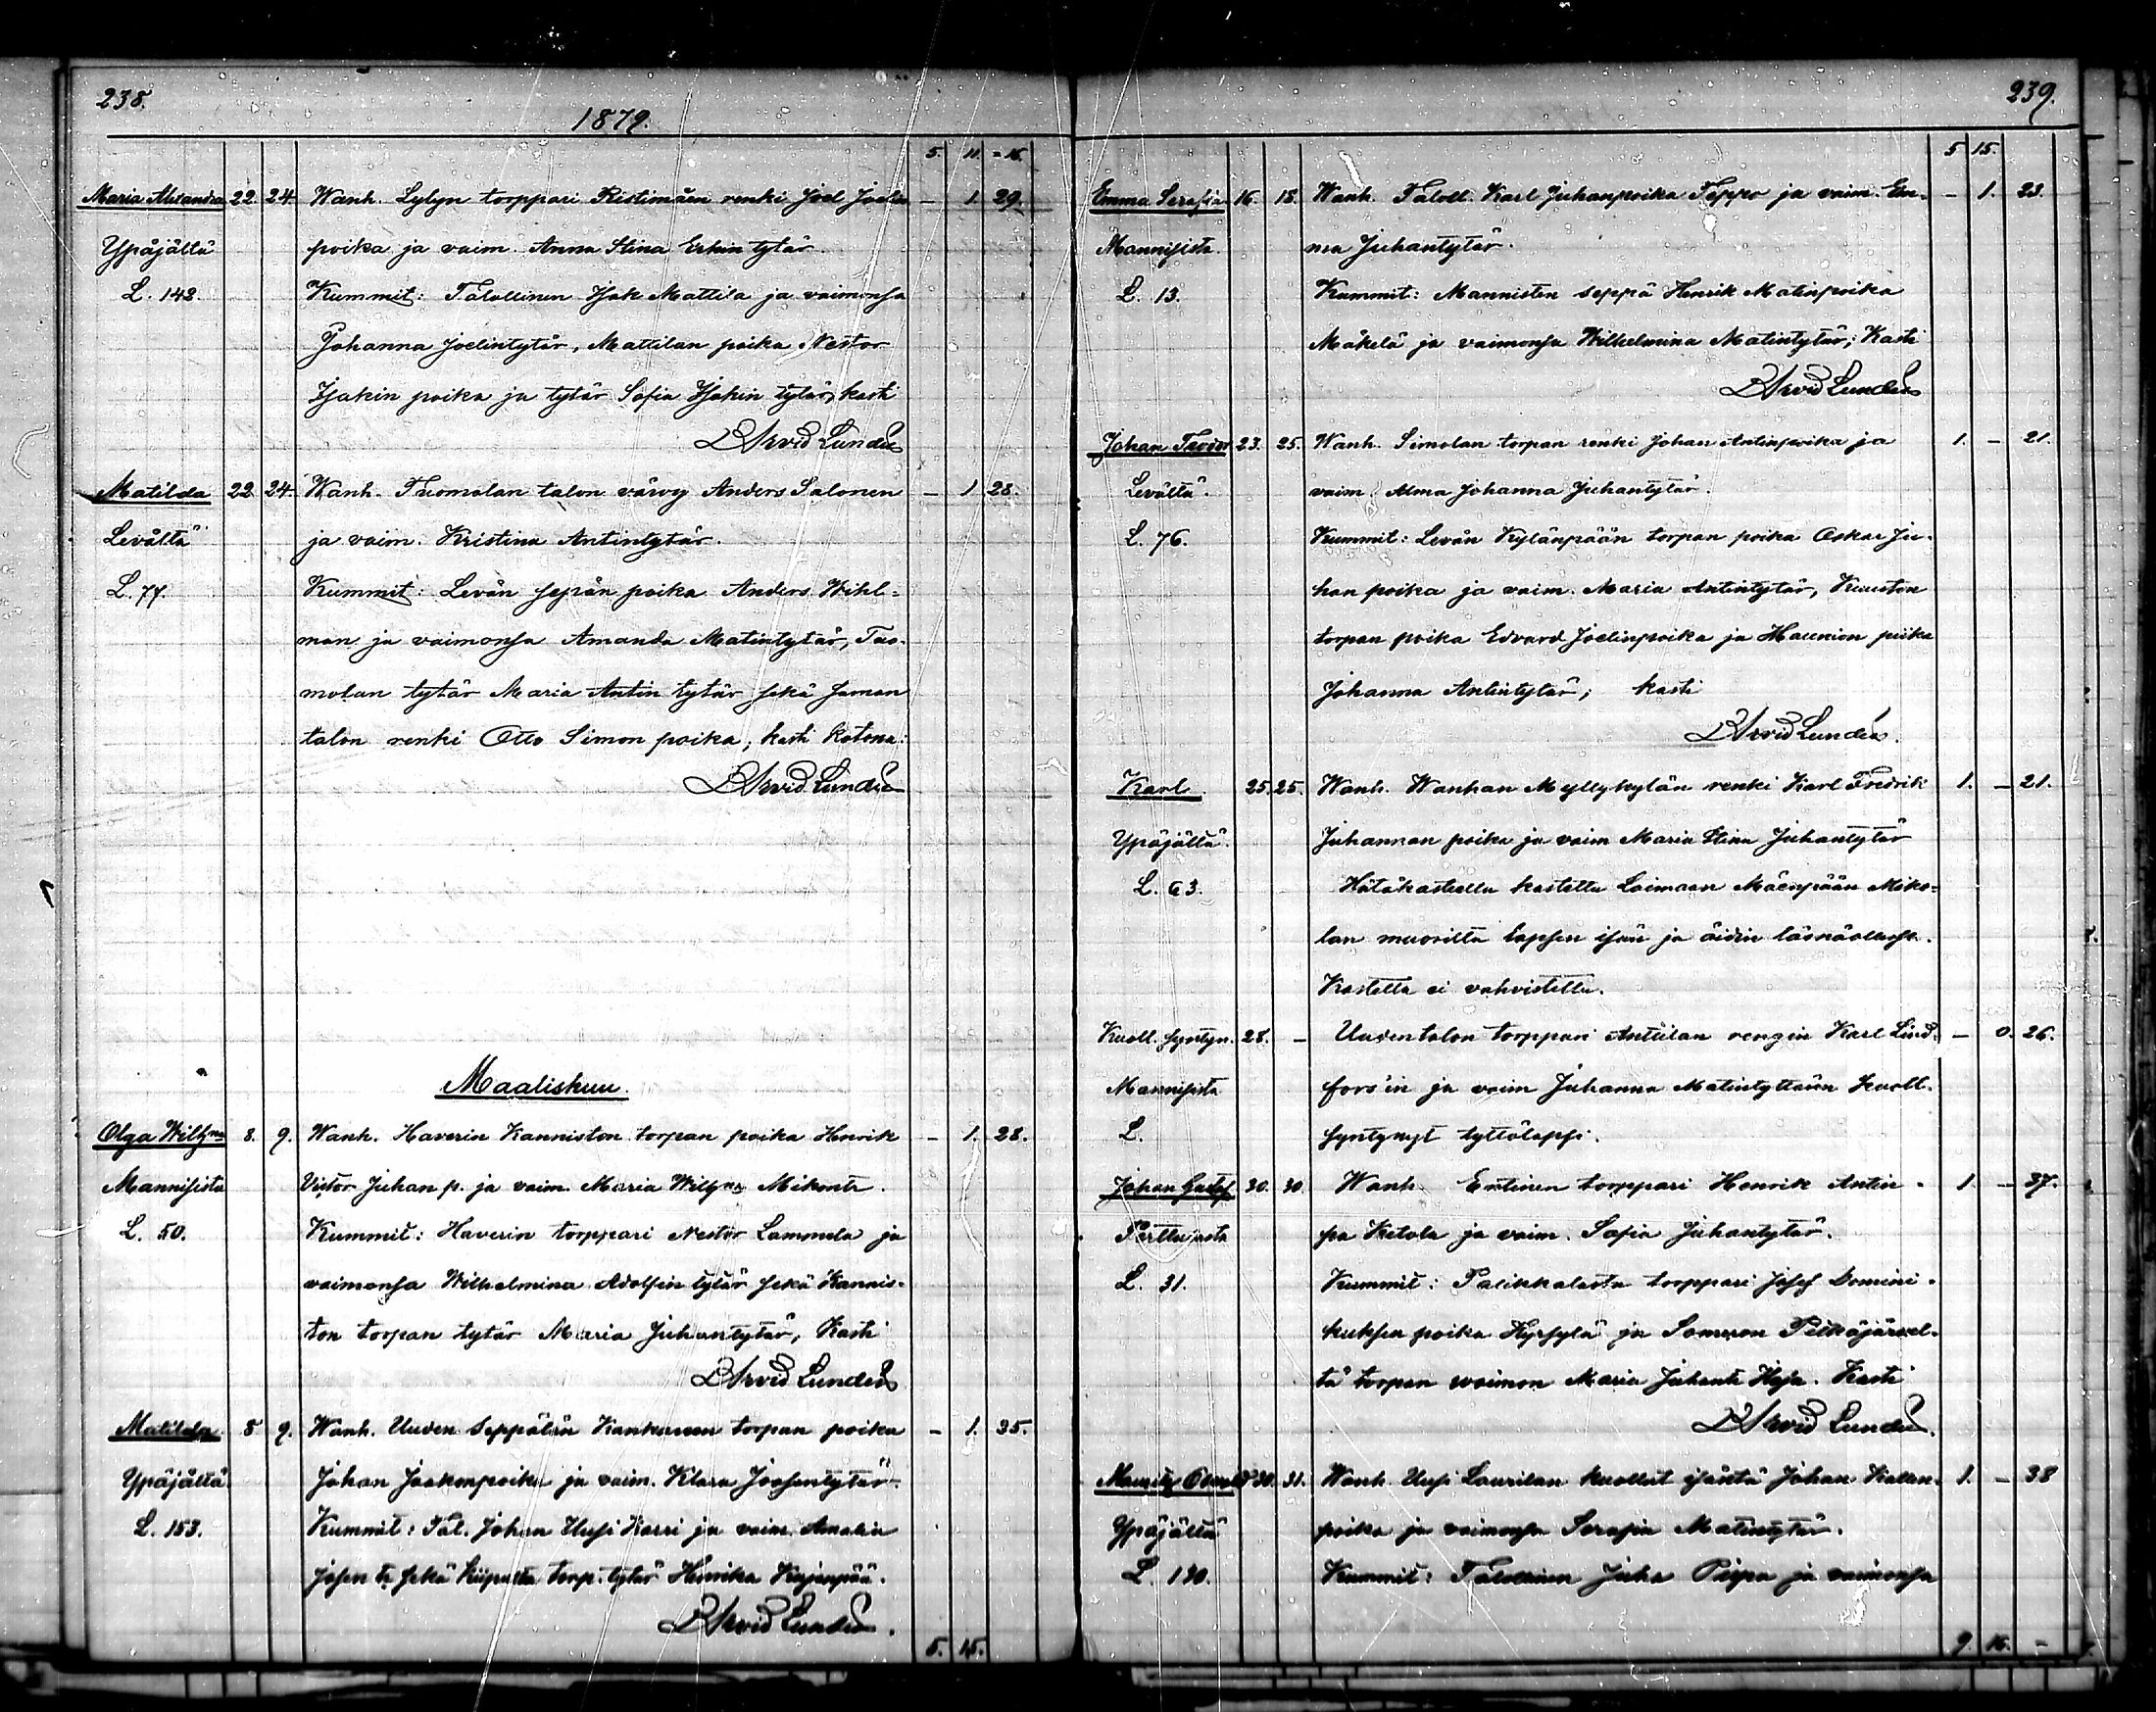 238.
1879.
5. 11. = 16.
Maria Alexandra 22. 24. Wanh. Lylyn torppari Ristimäen renki Joel Joelin — 1. 29.
Ypäjältä poika ja vaim. Anna Stina Erkin tytär.
L. 142. Kummit: Talollinen Isak Mattila ja vaimonsa
Johanna Joelintytär, Mattilan poika Nestor
Isakin poika ja tytär Sofia Isakin tytär, kasti
Arvid Lundén
Matilda 22. 24. Wanh. Tuomolan talon värvy Anders Salonen — 1 28.
Levältä ja vaim. Kristina Antintytär.
L. 77. Kummit: Levän sepän poika Anders Wihl-
man ja vaimonsa Amanda Matintytär, Tuo-
molan tytär Maria Antin tytär sekä saman
talon renki Otto Simon poika, kasti kotona:
Arvid Lundén
Maaliskuu.
Olga Wilhna 8. 9. Wanh. Haverin Kanniston torpan poika Henrik — 1. 28.
Mannisista Victor Juhan p. ja vaim. Maria Wilhna Mikontr.
L. 50. Kummit: Haverin torppari Nestor ja
vaimonsa Wilhelmina Adolfin tytär sekä Kannis-
ton torpan tytär Maria Juhantytär, Kasti
Arvid Lundén
Matilda 8 9. Wanh. Uuden Seppälän Kankareen torpan poika — 1. 35.
Ypäjältä. Johan Jaakonpoika ja vaim. Klara Joosentytär.
L. 153. Kummit: Tal. Johan Uusi Karri ja vaim. Amalia
Josen tr sekä torp. tytär Henrika
Arvid Lundén.
5. 15.
239.
5 15.
Emma Serafia 16. 18. Wanh. Taloll. Karl Juhanpoika Teppo ja vaim. Em- — 1. 23.
Mannisista. ma Juhantytär.
L. 13. Kummit: Mannisten seppä Henrik Matinpoika
Mäkelä ja vaimonsa Wilhelmina Matintytär; Kasti
Arvid Lundén
Johan Teodor 23. 25. Wanh. Simolan torpan renki Johan Antinpoika ja 1. — 21.
Levältä. vaim. Alma Johanna Juhantytär.
L. 76. Kummit: Levän Kylänpään torpan poika Oskar Ju-
han poika ja vaim. Maria Antintytär, Kuuston
torpan poika Edvard Joelinpoika ja piika
Johanna Antintytär; kasti
Arvid Lundén.
Karl 25. 25. Wanh. Wanhan Myllykylän renki Karl Fredrik 1. — 21.
Ypäjältä. Juhannan poika ja vaim Maria Stina Juhantytär
L. 63. Hätäkasteella kastettu Loimaan Mäenpään Miko-
lan muorilta lapsen isän ja äidin läsnäollessa.
Kastetta ei vahvistettu.
Kuoll. syntyn. 28. — Uudentalon torppari Anttilan rengin Karl Lind- — 0. 26.
Mannisista fors'in ja vaim Juhanna Matintyttären kuoll.
L. syntynyt tyttölapsi.
Johan Gustaf 30. 30. Wanh. Entinen torppari Henrik Antin- 1. — 37.
Perttulasta pa Ketola ja vaim. Sofia Juhantytär.
L. 31. Kummit: Palikkalasta torppari Josef Domini-
kuksen poika Kyrsylä ja Someron Pitkäjärvel-
tä torpan vaimon Maria Juhantr. Kasti
Arvid Lundén.
Mauritz Osvald 30. 31. Wanh. Uusi Laurilan kuollut isäntä Johan Kallen- 1. — 38
Ypäjältä poika ja vaimonsa Serafia Matintytär.
L. 130. Kummit: Talollinen Juha Piepa ja vaimonsa
9. 16. —